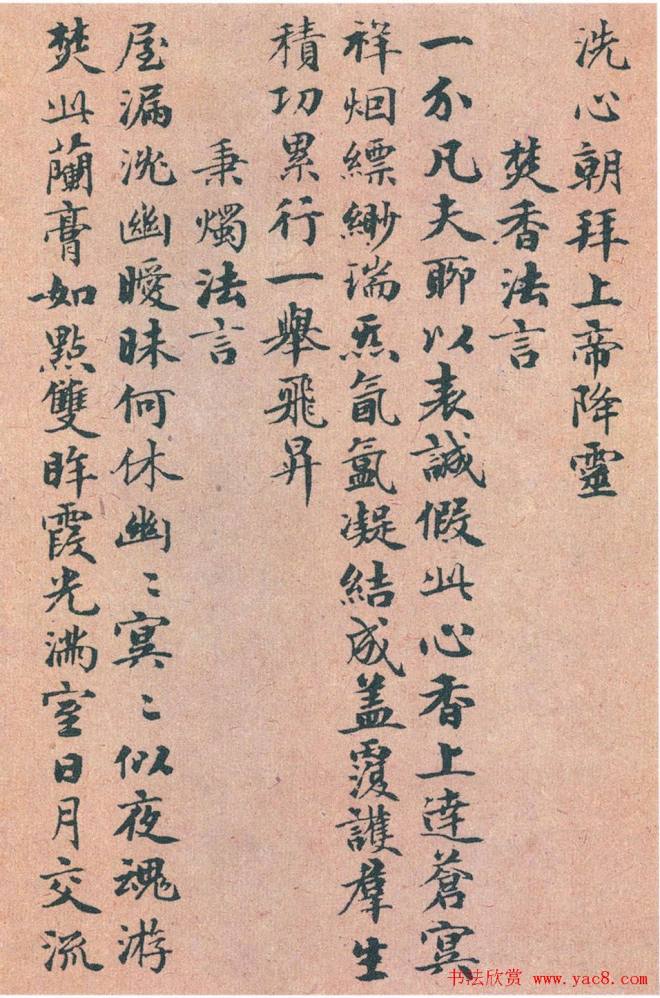 洗心朝拜上帝降靈
焚香法言
一介凡夫聊以表誠假此心香上達蒼冥
祥烟縹緲瑞炁氤氳凝結成蓋覆護羣生
積功累行一舉飛昇
秉燭法言
屋漏沈幽曖昧何休幽〻冥〻似夜魂游
焚此蘭膏如點雙眸霞光滿室日月交流
书法欣赏 www.yac8.com